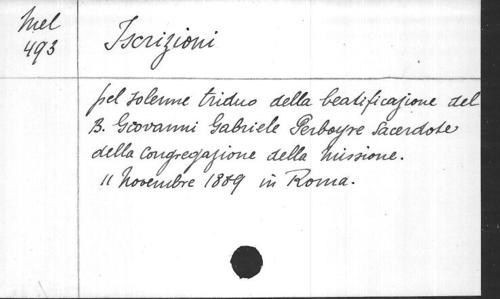 Mel
493
Iscrizioni
pel solenne triduo della beatificazione del
B. Giovanni Gabriele Perboyre Sacerdote
della Congregazione della Missione.
11 Novembre 1889 in Roma.